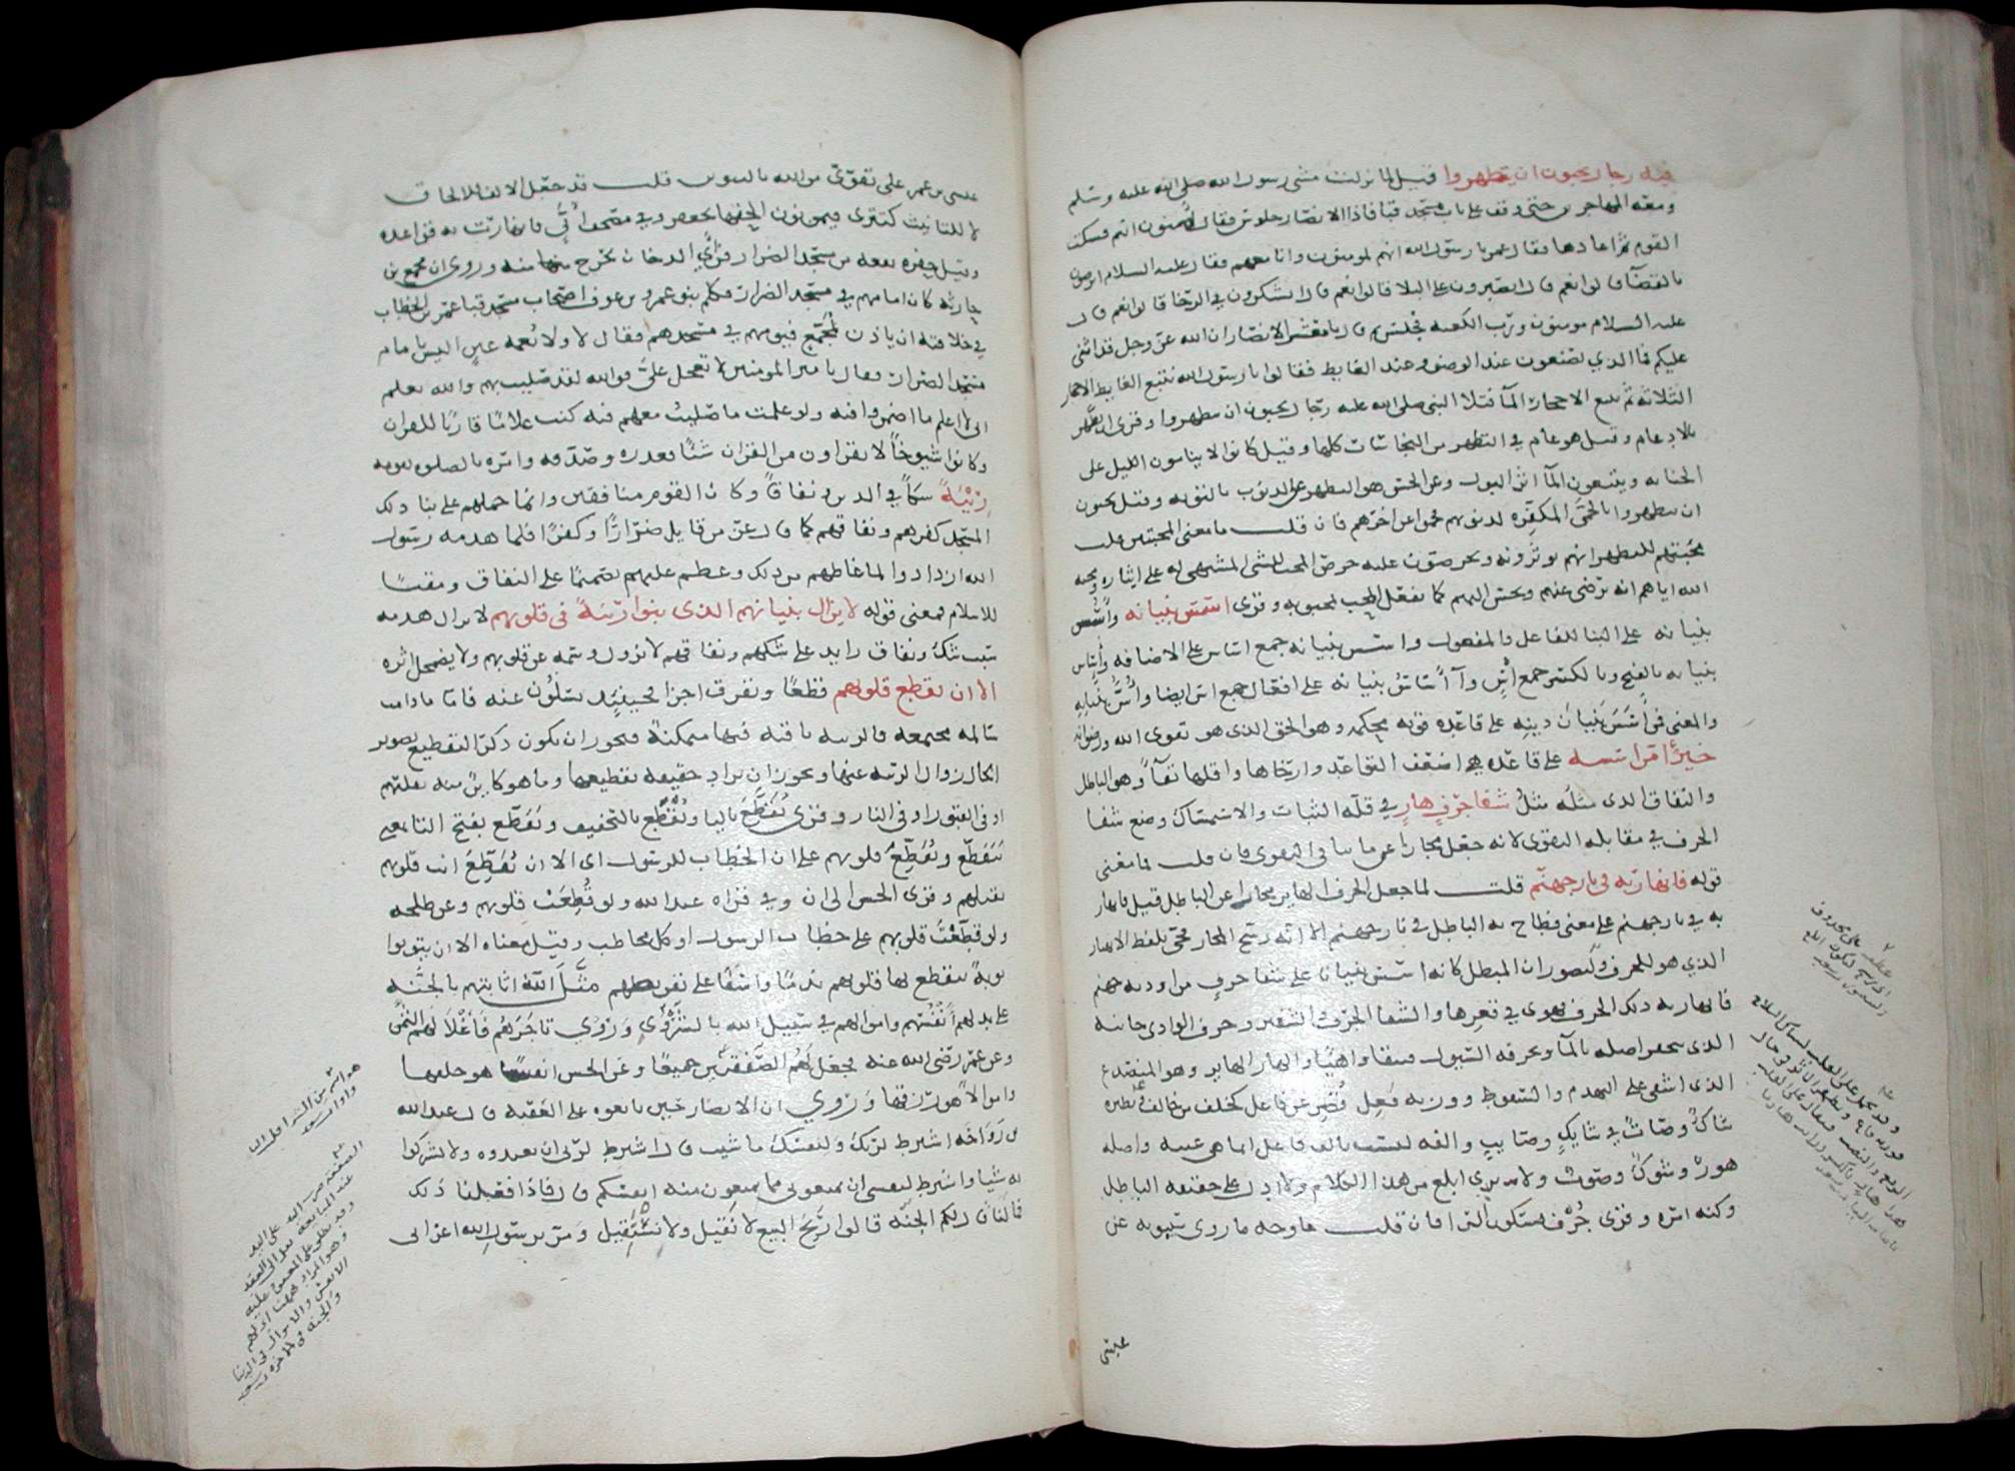 فيه رجال يحبون ان يتطهروا قيل لما نزلت مشى رسول الله صلى الله عليه وسلم
ومعه المهاجرين حتى وقف على باب مسجد قبا فاذا الانصار جلوس فقال امؤمنون انتم فسكت
القوم ثم اعادها فقال عمر يا رسول الله انهم لمومنون وانا معهم فقال عليه السلام اترضون
بالقضآ قالوا نعم قال اتصبرون على البلا قالوا نعم قال اتشكرون في الرخا قالوا نعم قال
عليه السلام مومنون ورب الكعبه فجلس ثم قال يا معشر الانصار ان الله عز وجل قد اثنى
عليكم فما الذي تصنعون عند الوضو وعند الغايط فقالوا يا رسول الله نتبع الغايط الاحجار
الثلاثه ثم نتبع الاحجار المآ فتلا النبي صلى الله عليه رجال يحبون ان يتطهروا وقرى ان يطهروا
بالادغام وقيل هو عام في التطهر من النجاسات كلها وقيل كانوا لا ينامون الليل على
الجنابه ويتبعون المآ اثر البول وعن الحسن هو التطهر عن الذنوب بالتوبه وقيل يحبون
ان يتطهروا بالحمى المكفره لذنوبهم فحموا عن اخرهم فان قلت ما معنى المحبتين قلت
محبتهم للتطهر انهم يوثرونه ويحرصون عليه حرص المحب للشى المشتهى له على ايثاره ومحبه
الله اياهم انه يرضى عنهم ويحسن اليهم كما يفعل المحب لمحبوبه وقرى اسس بنيانه وأُسس
بنيانه على البنا للفاعل والمفعول واسس بنيانه جمع اساس على الاضافه وأساس
بنيانه بالفتح وبالكسر جمع أس وآساس بنيانه على افعال جمع اس ايضا وأُسُّ بنيانه
والمعنى فمن اسس بنيان دينه على قاعده قويه محكمه وهو الحق الذى هو تقوى الله ورضوانه
خيرٌ ام من اسسه على قاعده هي اضعف القواعد وارخاها واقلها بقآ وهو الباطل
والنفاق الذى مثله مثلُ شفا جرف هارٍ في قله الثبات والاستمساك وضع شفا
الجرف في مقابله التقوى لانه جعل مجازا عن ما ينافى التقوى فان قلت فما معنى
قوله فانهار به في نار جهنم قلت لما جعل الجرف الهاير مجازا عن الباطل قيل فانهار
به في نار جهنم على معنى فطاح به الباطل في نار جهنم الا انه رشح المجاز فجى بلفظ الانهيار
الذي هو للجرف وليصور ان المبطل كانه اسس بنيانا على شفا جرف من اوديه جهنم
فانهار به ذلك الجرف فهوى في قعرها والشفا الحرف والشفير وجرف الوادى جانبه
الذى يتحفر اصله بالمآ وتجرفه السيول فيبقا واهيًا والهار الهاير وهو المتصدع
الذى اشفى على التهدم والسقوط ووزنه فَعِل قُصِر عن فاعل كخلف من خالف ونظيره
شاكٌ وصاتٌ في شايكٍ وصايتٍ والفه ليست بالف فاعل انما هى عينه واصله
هورٌ وشوكٌ وصوتٌ ولا ترى ابلغ من هذا الكلام ولا ادل على حقيقه الباطل
وكنه امره وقرى جُرْف بسكون الرا فان قلت فما وجه ما روى سيبويه عن
عيسى
عيسى بن عمر على تقوىً من الله بالتنوين قلت قد جعل الالف للالحاق
لا للتانيث كتترى فيمن نون الحقها بجعفر وفي مصحف أُبَيّ فانهارت به قواعده
وقيل حفره بقعه من مسجد الضرار فرئي الدخان يخرج منها منه وروى ان مجمع بن
جاريه كان امامهم في مسجد الضرار فكلم بنو عمرو بن عوف اصحاب مسجد قبا عمر بن الخطاب
في خلافته ان ياذن لمجمع فيومهم في مسجدهم فقال لا ولا نُعمه عينٍ اليس بامام
مسجد الضرار فقال يا امير المومنين لا تعجل عليَّ فوالله لقد صليت بهم والله يعلم
انى لا اعلم ما اضمروا فيه ولو علمت ما صليت معهم فيه كنت غلامًا قاريًا للقران
وكانوا شيوخًا لا يقراون من القران شيًا فعذره وصدقه وامره بالصلوه بقومه
رِيْبَةً شكاً في الدين ونفاقاً وكان القوم منافقين وانما حملهم على بنا ذلك
المسجد كفرهم ونفاقهم كما قال عز من قايل ضرارًا وكفرًا فلما هدمه رسول
الله ازدادوا لما غاظهم من ذلك وعظم عليهم تصميمًا على النفاق ومقتًا
للاسلام فمعنى قوله لا يزال بنيانهم الذى بنوا ريبةً فى قلوبهم لا يزال هدمه
سبب شك ونفاق زايد على شكهم ونفاقهم لا يزول وسمه عن قلوبهم ولا يضمحل اثره
الا ان تقطع قلوبهم قطعًا وتفرق اجزا فحينئذٍ يسلُون عنه فاما ما دامت
سالمه مجتمعه فالريبه باقيه فيها متمكنة فيجوز ان يكون ذكر التقطيع تصوير
لحال زوال الريبه عنها ويجوز ان يراد حقيقه تقطيعها وما هو كاين منه بقتلهم
او فى القبور او فى النار وقرى يُقَطَّعَ باليا وتُقْطَع بالتخفيف وتَقَطَّع بفتح التا بمعنى
تتقطع وتُقَطِّعَ قلوبهم على ان الخطاب للرسول اى الا ان تُقَطِّعَ انت قلوبهم
بقتلهم وقرى الحسن الى ان وفي قراه عبد الله ولو قُطِعَتْ قلوبهم وعن طلحه
ولو قطَّعْتَ قلوبهم على خطاب الرسول او كل مخاطب وقيل معناه الا ان يتوبوا
توبةً تتقطع بها قلوبهم ندمًا واسفًا على تفريطهم مثَّلَ اللّٰه اثابتهم بالجنَّه
على بذلهم أنفُسَهم واموالهم في سبيل الله بالشَّرْوَى وَرُوي تاجَرَهُم فَأَغْلَا لهم الثمن
وعن عمر رضى الله عنه فجعل لهم الصَّفقتين جميعًا وعن الحسن انفسًا هو خلقها
واموالاً هو رزقها وَرُوي ان الانصار حين بايعوه على العَقبه قال عبد الله
بن رَوَاحَه اشترط لربك ولنفسك ما شيت قال اشترط لربى ان تعبدوه ولا تشركوا
به شيا واشترط لنفسى ان تمنعونى مما تمنعون منه انفسكم قال فاذا فعلنا ذلك
فما لنا قال لكم الجنَّه قالوا رَبِحَ البيع لا نُقيل ولا نستقيل وَمرّ برسول الله اعرابى